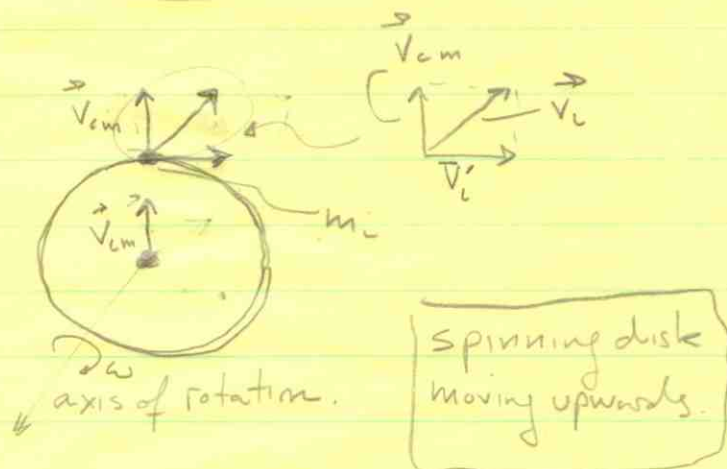 V⃗cm
V⃗cm
V⃗i
V⃗cm
V̄i'
mi
ω
axis of rotation.
spinning disk
moving upwards.